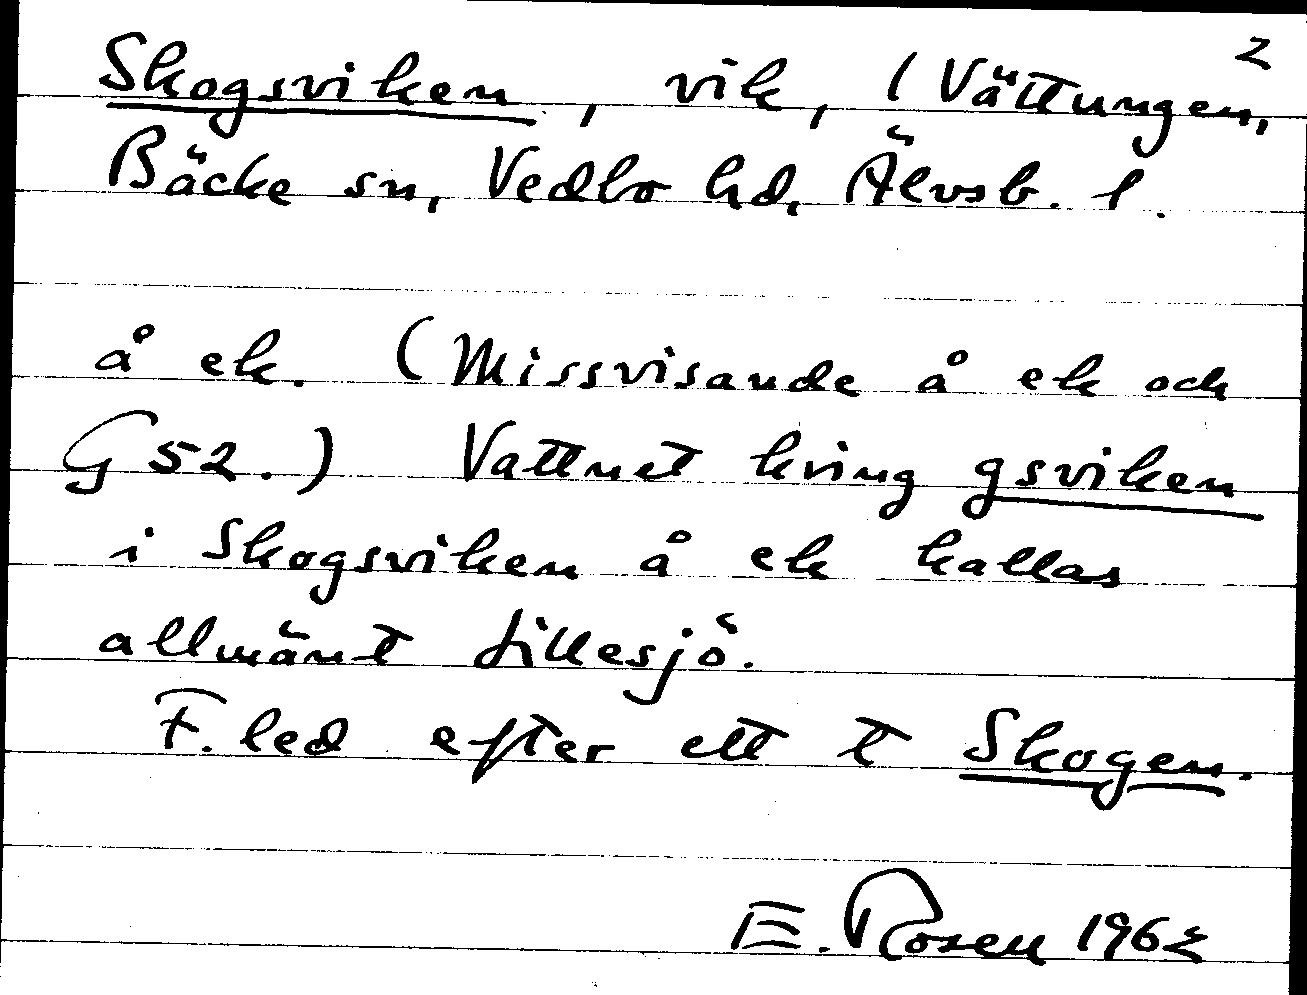 2
Skogsviken, vik, (Vättungen,
Bäcke sn, Vedbo hd, Älvsb. l.
å ek. (Missvisande å ek och
G 52.) Vattnet kring gsviken
i Skogsviken å ek kallas
allmänt Lillesjö.
F. led efter ett t Skogen.
E. Rosen 1962